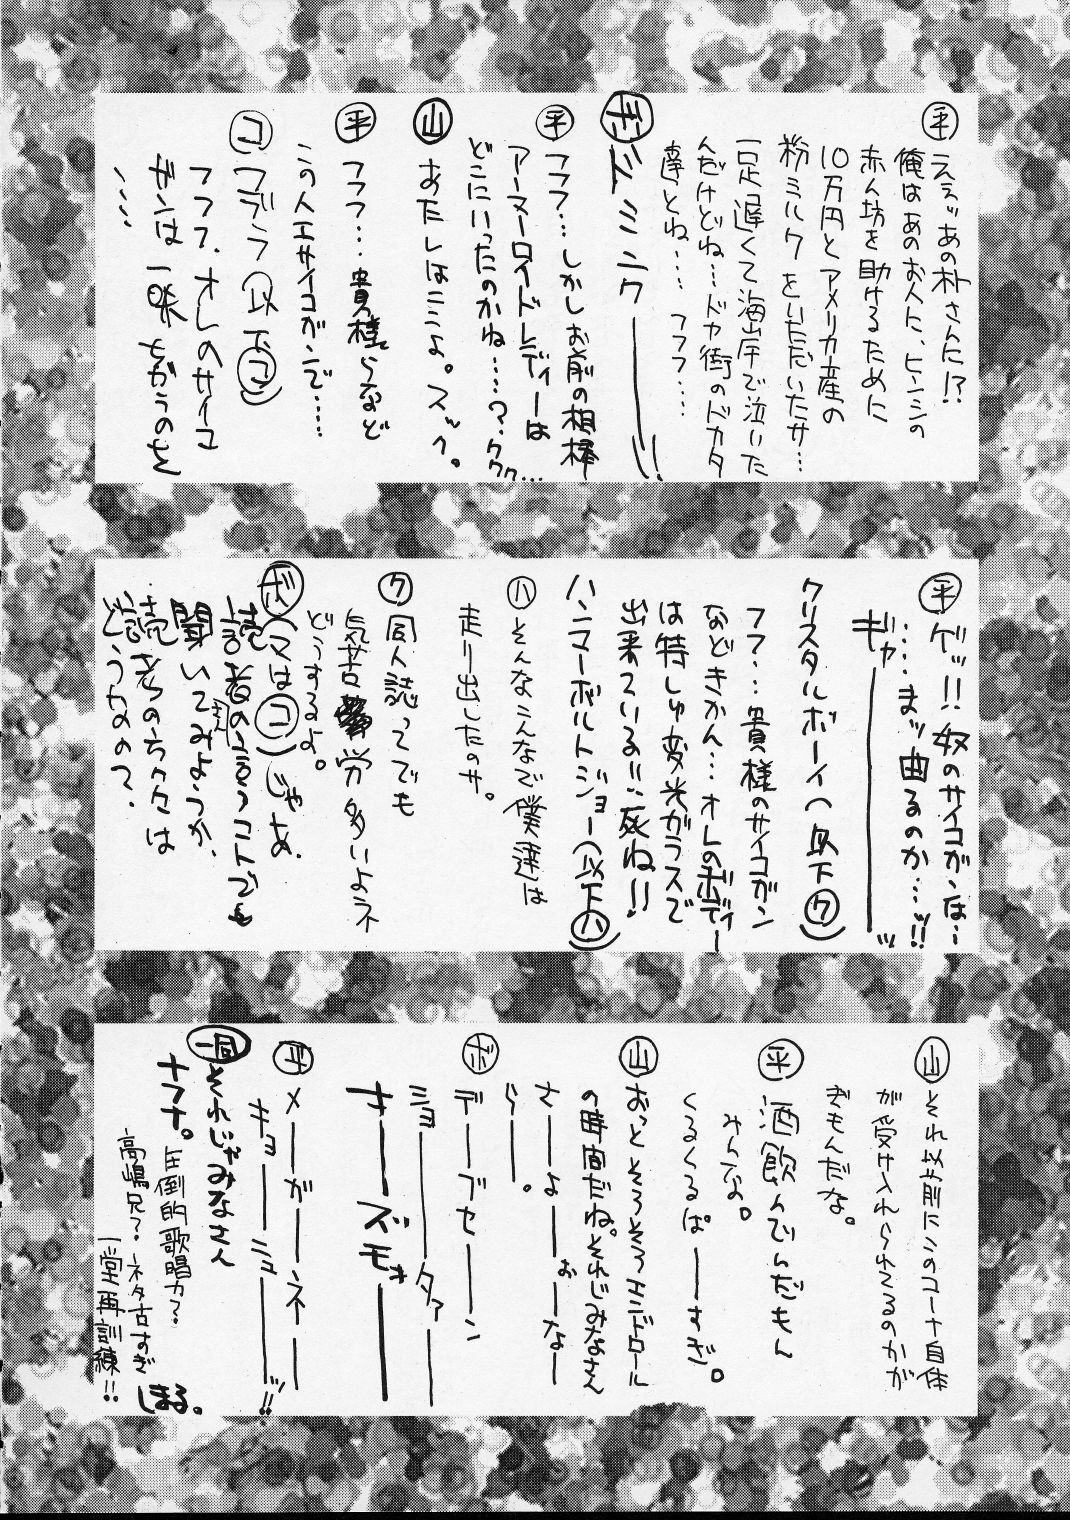 平 えぇッあの朴さんに!?
俺はあのお人に、ヒンシの
赤ん坊を助けるために
10万円とアメリカ産の
粉ミルクをいただいたサ…
一足遅くて海岸で泣いた
んだけどね…ドヤ街のドカタ
達とね… フフフ…
ボ ドミニクーーー!!
平 フフフ…しかしお前の相棒
アーマーロイドレディーは
どこにいったのかね…?ククク…
山 あたしはここよ。ズベ。
平 フフフ…貴様らなど
この人工サイコガンで…
コ コブラ(以下コ)
フフフ、オレのサイコ
ガンは一味ちがうのさ
…
平 ゲッ!!奴のサイコガンは…
…まッ曲るのか…ッ!!
ギャーーーッ
クリスタルボーイ(以下ク)
フフ…貴様のサイコガン
などきかん…オレのボディー
は特しゅ変光ガラスで
出来ている!!死ね!!
ハンマーボルトジョー(以下ハ)
ハ そんなこんなで僕達は
走り出したのサ。
ク 同人誌ってでも
気苦労多いよネ
どうするよ。
ボ (マはコ)じゃあ、
読者の言うコトでも
聞いてみようか、
読者の方々は
どうなの?
山 それ以前にこのコーナ自体
が受け入れられてるのかが
ぎもんだな。
平 酒飲んでんだもん
みんな。
くるくるぱーーすぎ。
山 おっとそろそろエンドロール
の時間だね。それじみなさん
さーーよーーおーーなーー
らーー。
ボ デーーブセーーン
ショーーータァーーー
オーーズモォーーー
平 メーーガーーネーー
キョーーニューーーッ!!
一同 それじゃみなさん
ナフナ。
圧倒的歌唱力?
高嶋兄?ネタ古すぎ
一堂再訓練!!
しまる。